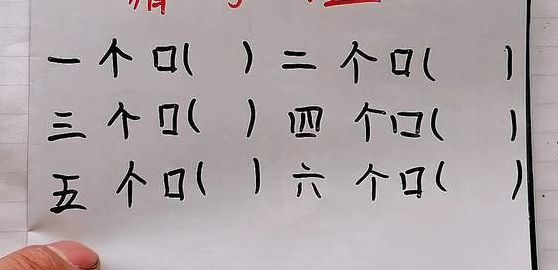 一个口( ) 二个口( )
三个口( ) 四个口( )
五个口( ) 六个口( )